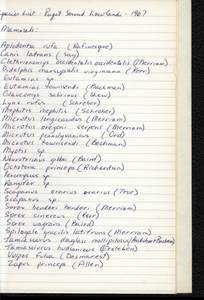 Species List - Puget Sound Lowlands - 1987
Mammals:
Aplodontia rufa (Rafinesque)
Canis latrans (Say)
Clethrionomys occidentalis occidentalis (Merriam)
Didelphis marsupialis virginiana (Kerr)
Eutamias sp
Eutamias townsendii (Bachman)
Glaucomys sabrinus (Shaw)
Lynx rufus (Schreber)
Mephitis mephitis (Schreber)
Microtus longicaudus (Merriam)
Microtus oregoni serpens (Merriam)
Microtus pennsylvanicus (Ord)
Microtus townsendii (Bachman)
Myotis sp
Neurotrichus gibbsi (Baird)
Ochotona princeps (Richardson)
Peromyscus sp
Rangifer sp
Scapanus orarius orarius (True)
Scapanus sp.
Sorex bendirii bendirii (Merriam)
Sorex cinereus (Kerr)
Sorex vagrans (Baird)
Spilogale gracilis latifrons (Merriam)
Tamiasciurus douglasi mollipilosus (Audubon & Bachman)
Tamiasciurus hudsonicus (Erxleben)
Vulpes fulva (Desmarest)
Zapus princeps (Allen)